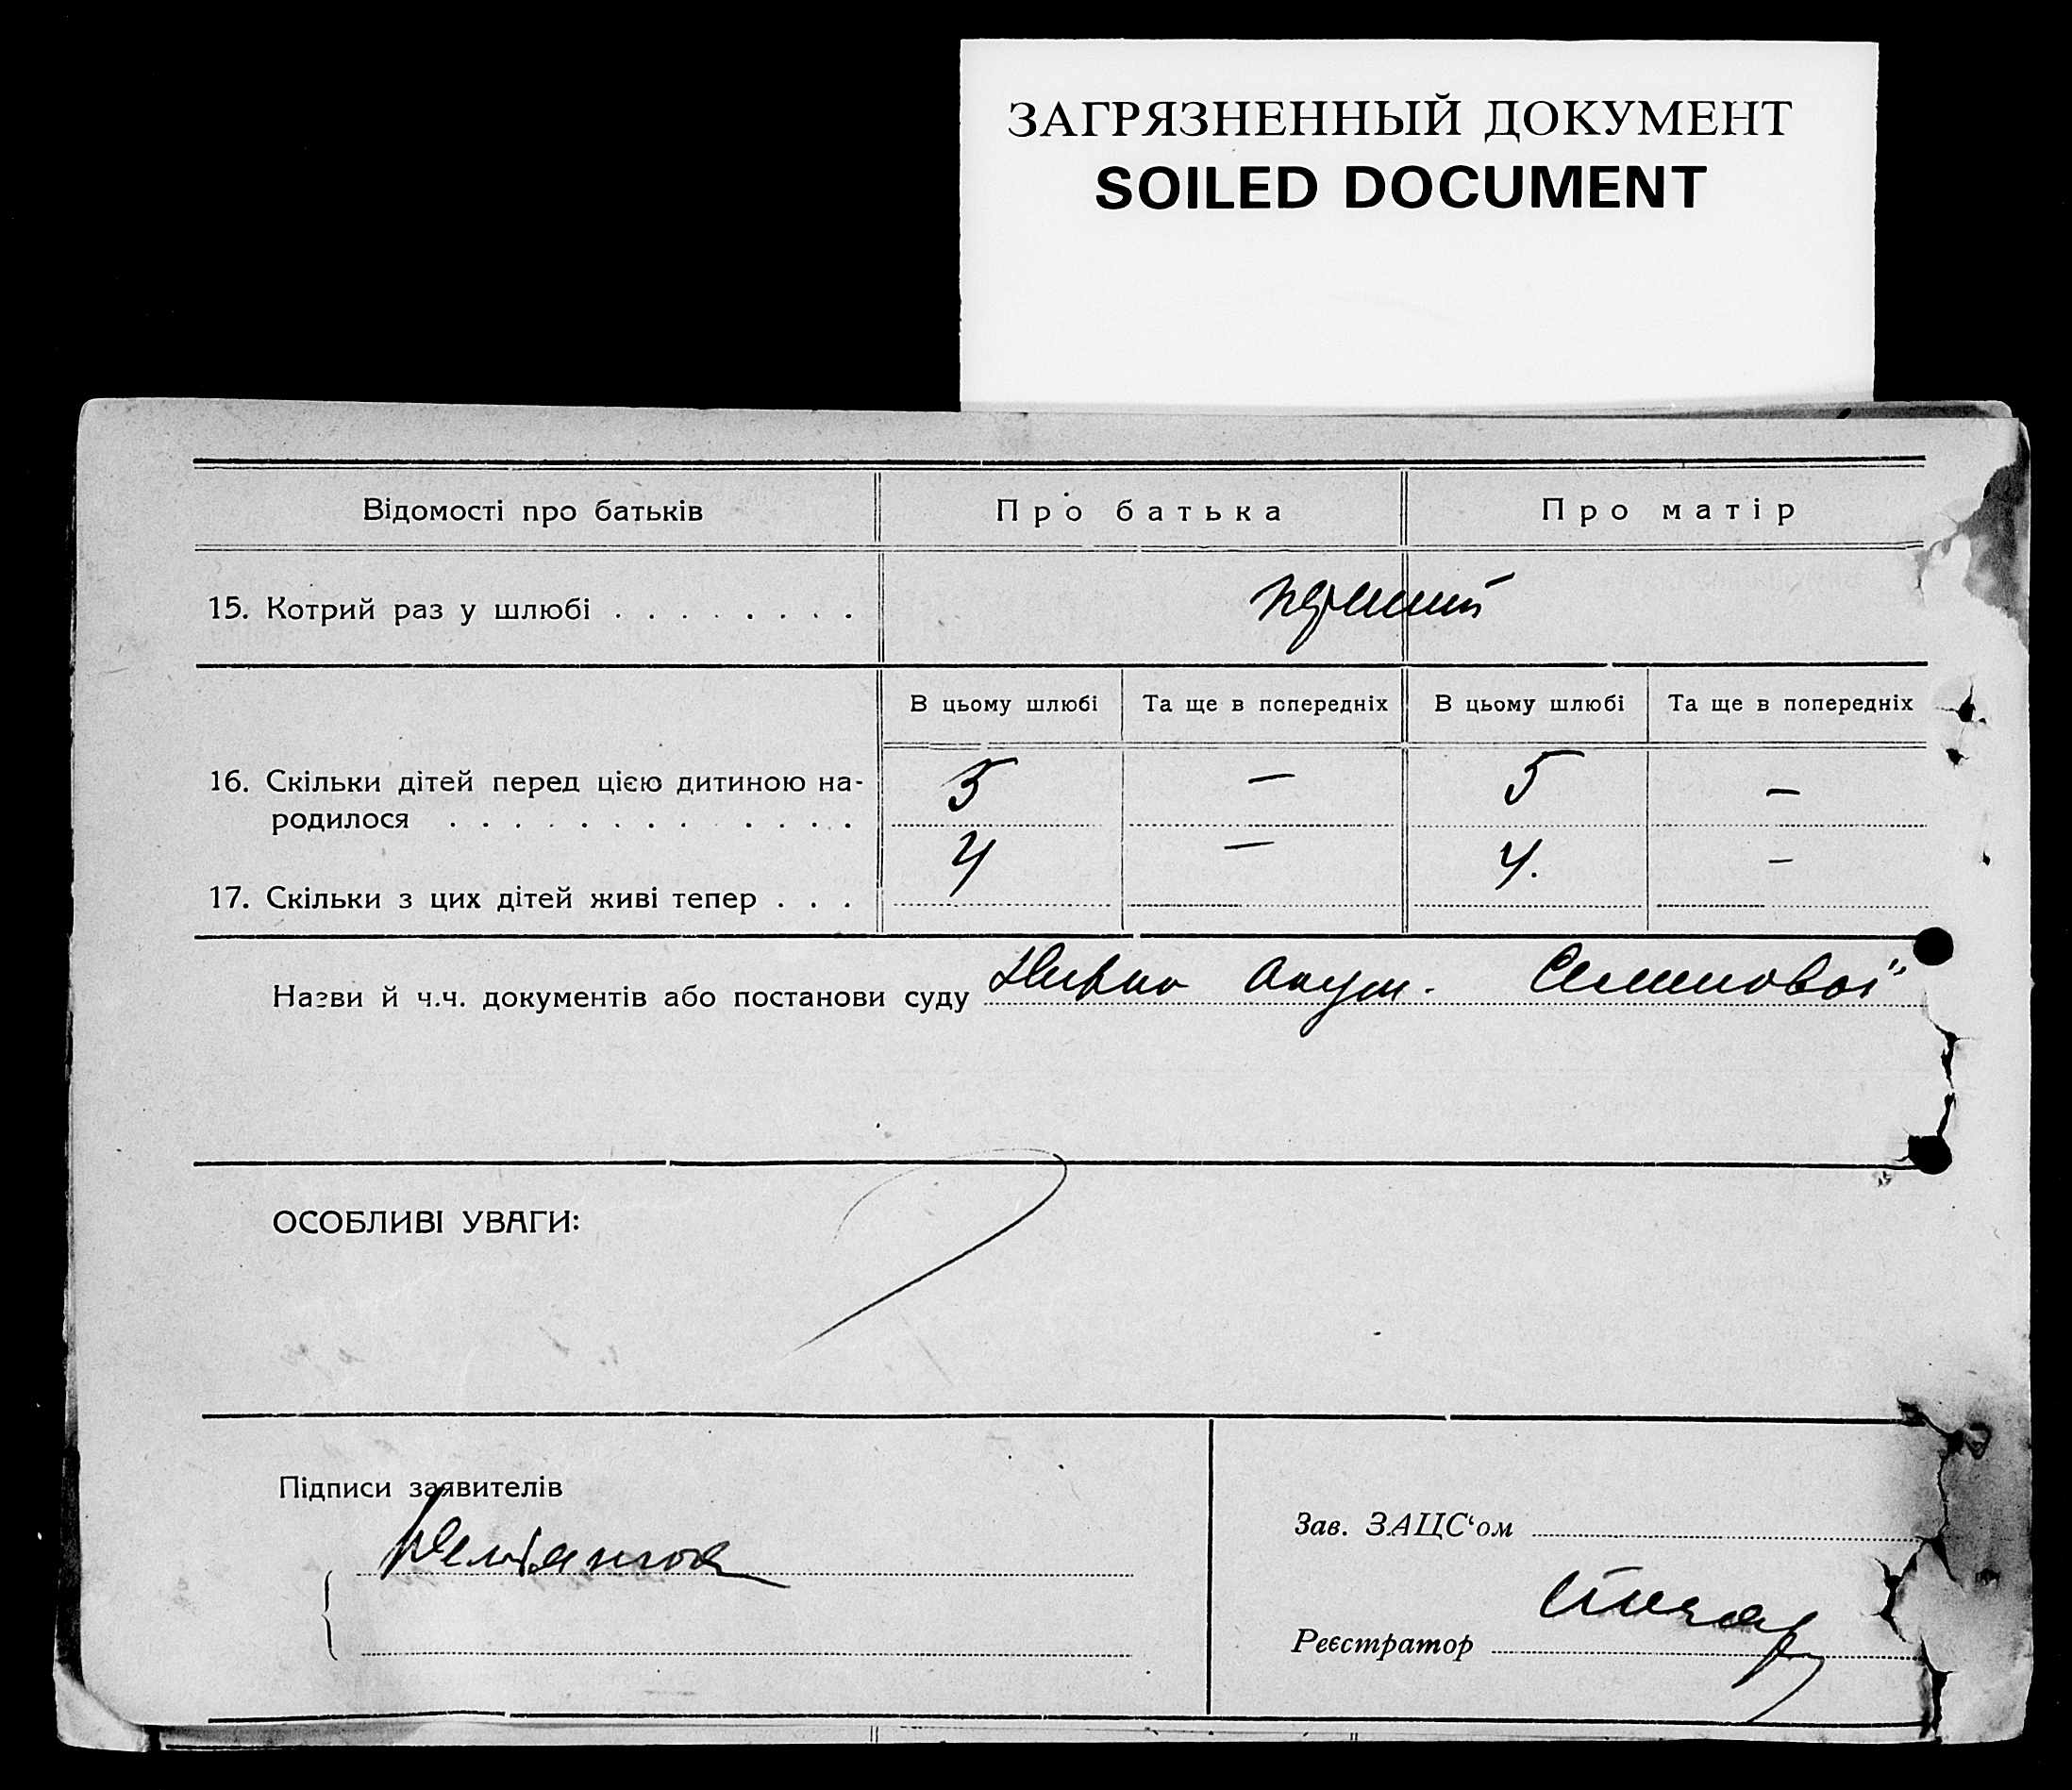 ЗАГРЯЗНЕННЫЙ ДОКУМЕНТ
SOILED DOCUMENT
Відомості про батьків Про батька Про матір
15. Котрий раз у шлюбі . . . . . . . . перший
В цьому шлюбі Та ще в попередніх В цьому шлюбі Та ще в попередніх
16. Скільки дітей перед цією дитиною на-
родилося . . . . . . . . . . . . . 5 — 5 —
17. Скільки з цих дітей живі тепер . . . 4 — 4. —
Назви й ч.ч. документів або постанови суду акуш.
ОСОБЛИВІ УВАГИ:
Підписи заявителів
Зав. ЗАЦС‘ом
Реєстратор